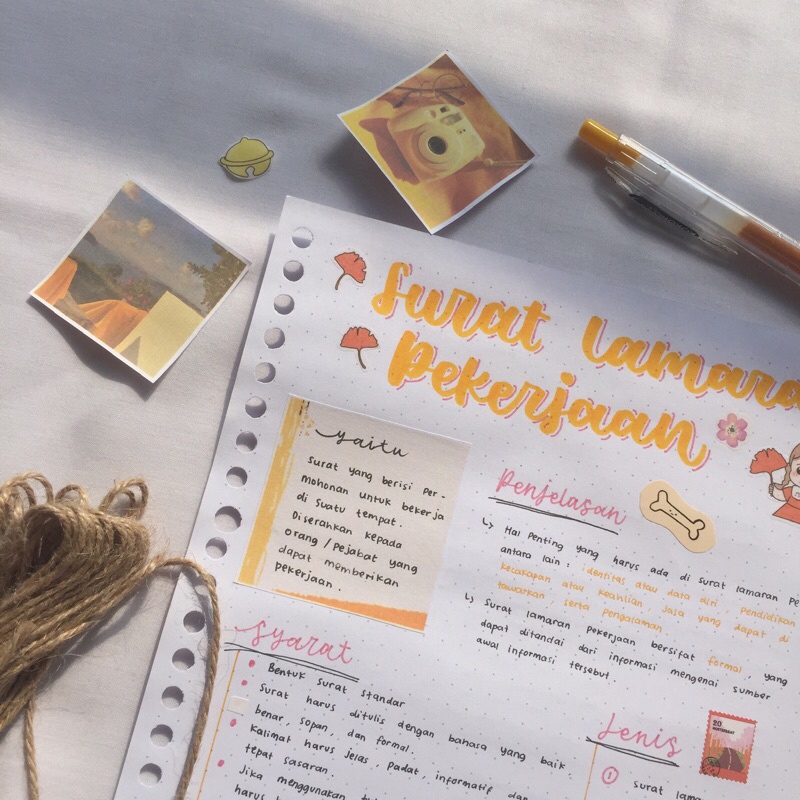 Surat lamara
Pekerjaan
yaitu
Surat yang berisi per-
mohonan untuk bekerja
di suatu tempat.
Diserahkan kepada
orang / pejabat yang
dapat memberikan
pekerjaan.
Penjelasan
↳ Hal penting yang harus ada di surat lamaran pe
antara lain : identitas atau data diri, pendidikan
kecakapan atau keahlian, jasa yang dapat di
tawarkan, serta pengalaman.
↳ Surat lamaran pekerjaan bersifat formal, yang
dapat ditandai dari informasi mengenai sumber
awal informasi tersebut.
Syarat
• Bentuk surat standar
• Surat harus ditulis dengan bahasa yang baik
benar, sopan, dan formal.
• Kalimat harus jelas, padat, informatif dan
tepat sasaran.
• Jika menggunakan
harus
Jenis
① surat lama
20